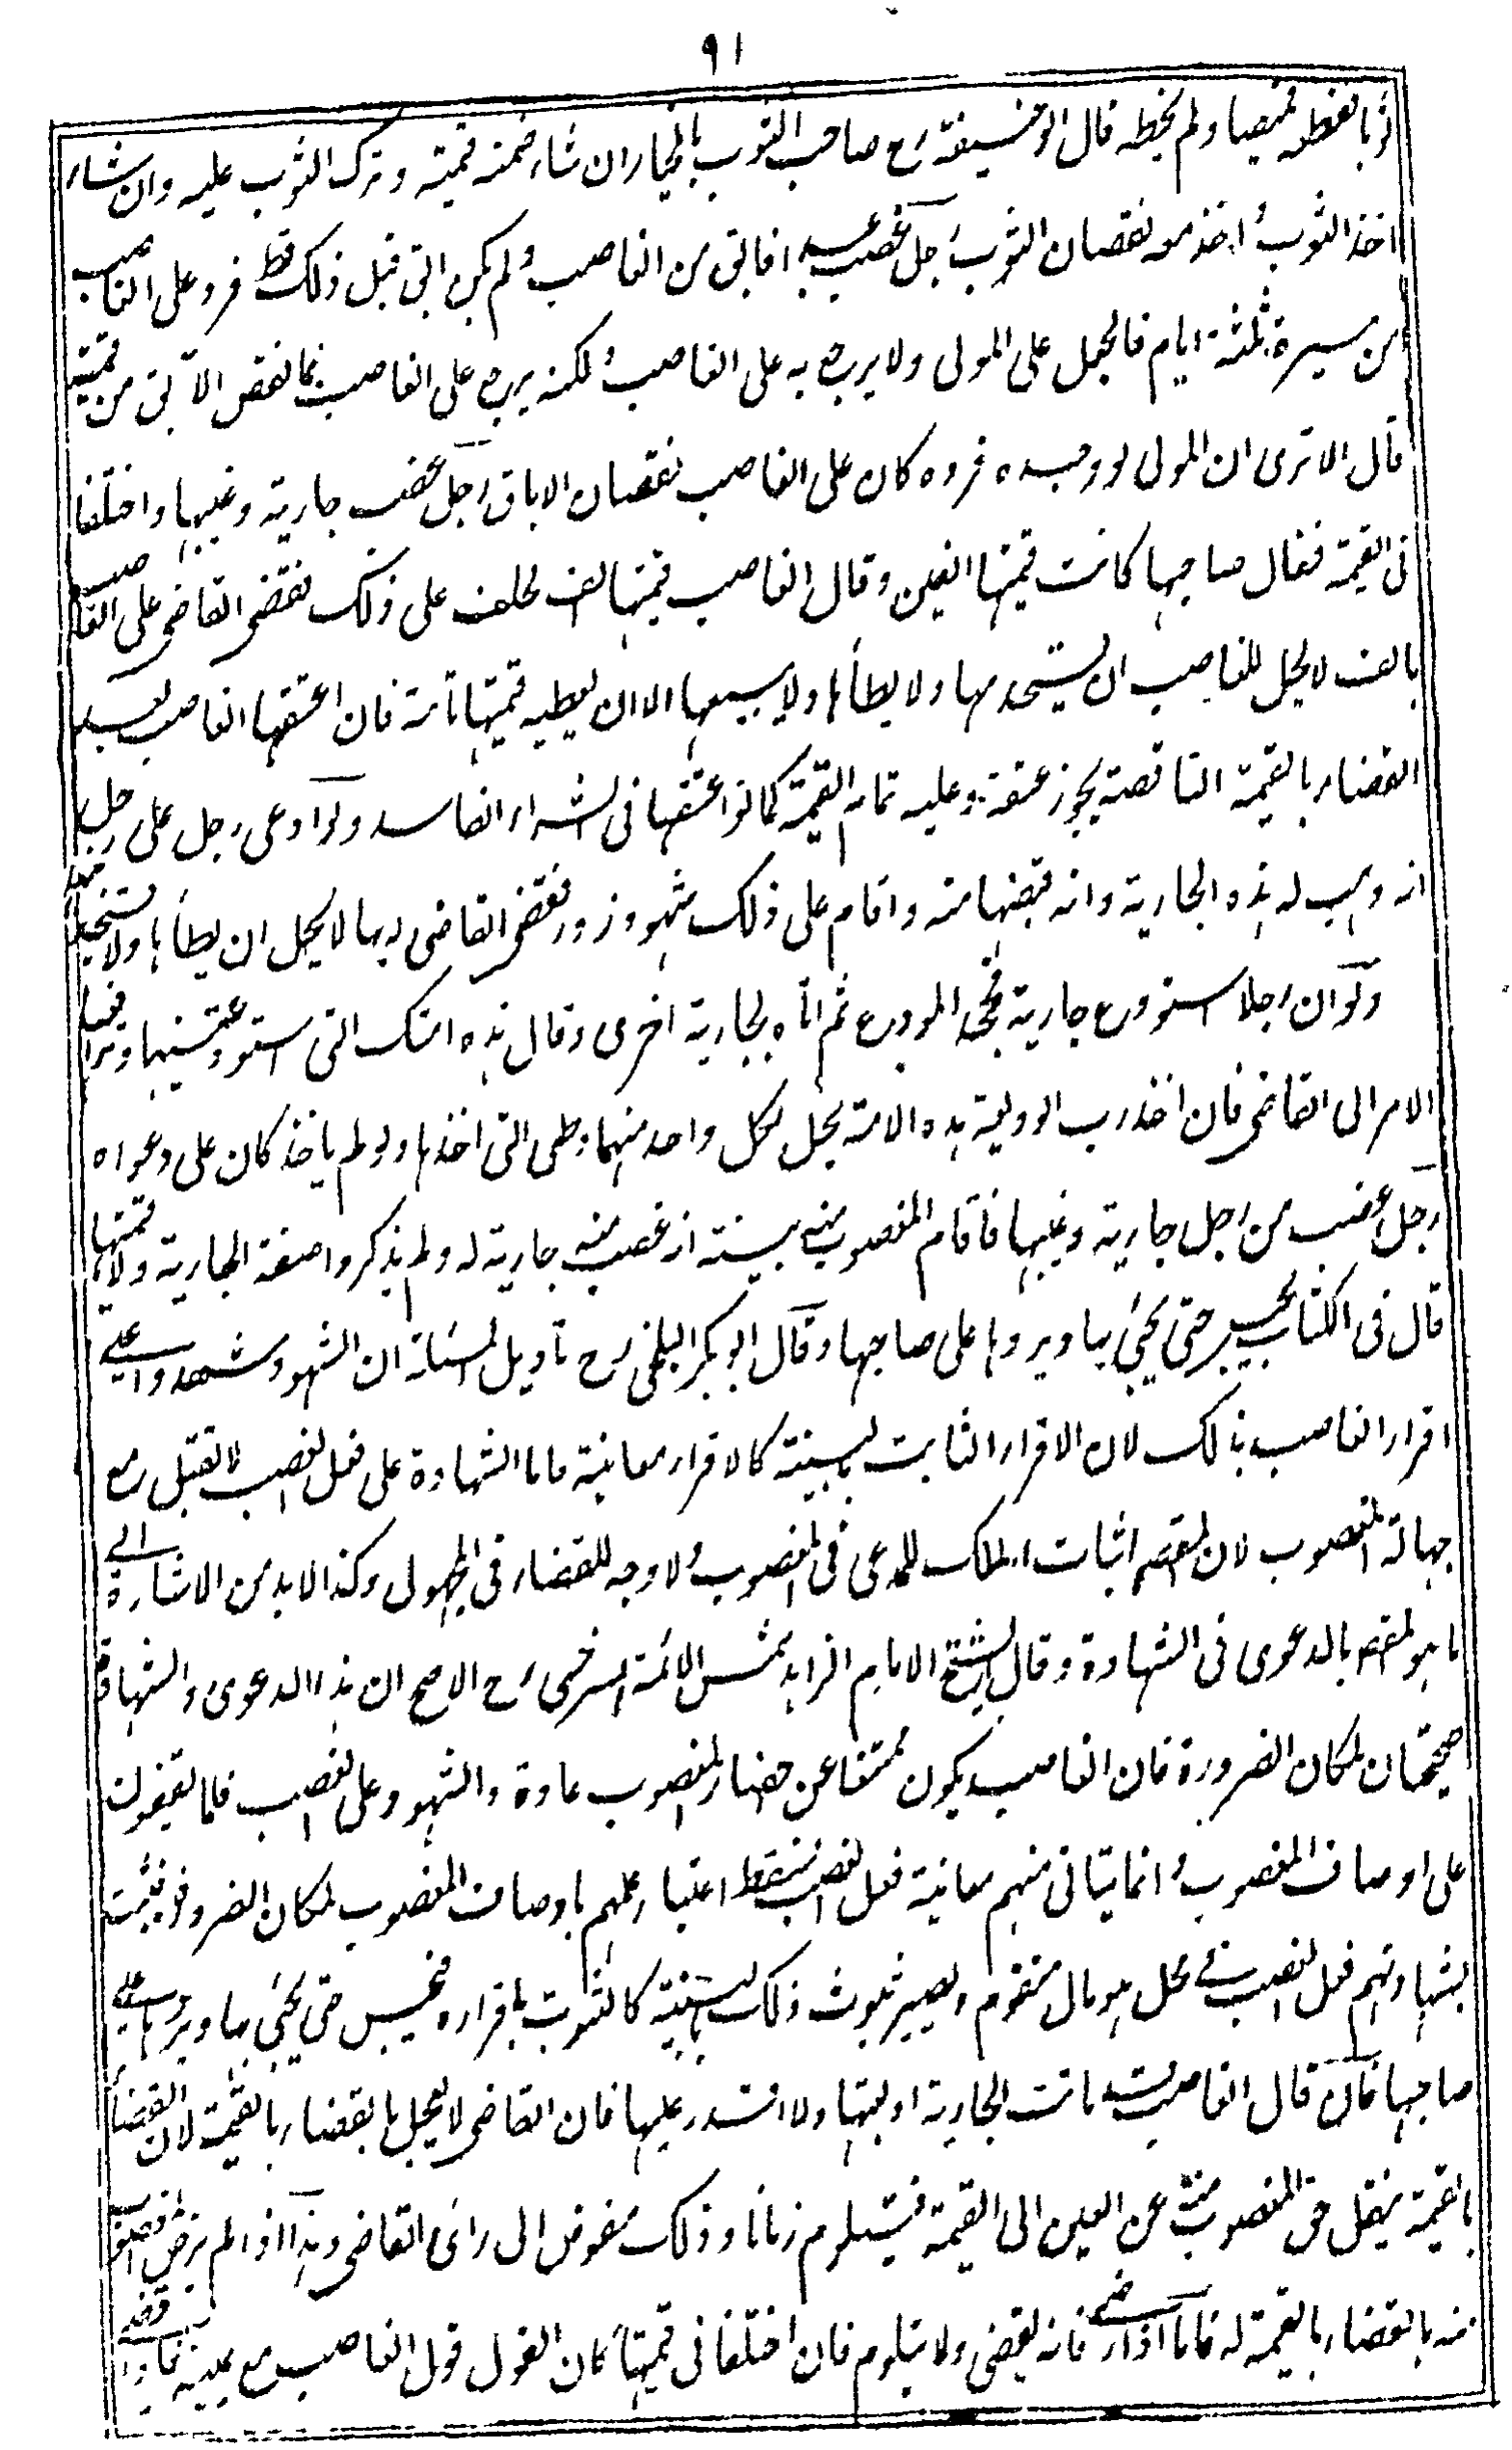 ٩١
ثوبا فقطعه قميصا ولم يخطه قال ابو حنيفة رح صاحب الثوب بالخيار ان شاء ضمنه قيمته وترك الثوب عليه وان شاء
اخذ الثوب واخذ منه نقصان الثوب رجل غصب عبدا فابق من الغاصب ولم يكن ابق قبل ذلك قط فرد على الغاصب
من مسيرة ثلثة ايام فالجعل على المولى ولا يرجع به على الغاصب ولكنه يرجع على الغاصب بما نقص الآبق من قيمته
قال الا ترى ان المولى لو وجده فرده كان على الغاصب نقصان الاباق رجل غصب جارية وغيبها واختلفا
فى القيمة فقال صاحبها كانت قيمتها الفين وقال الغاصب قيمتها الف يحلف على ذلك فقضى القاضى على الغاصب
بالف لا يحل للغاصب ان يستخدمها ولا يطأها ولا يبيعها الا ان يعطيه قيمتها تامة فان اعتقها الغاصب بعد
القضاء بالقيمة الناقصة يجوز عتقه وعليه تمام القيمة كما لو اعتقها فى الشراء الفاسد ولو ادعى رجل على رجل
انه وهب له هذه الجارية وانه قبضها منه واقام على ذلك شهود زور فقضى القاضى بها لا يحل ان يطأها ولا يستخدمها
ولو ان رجلا استودع جارية فجحد المودع ثم اتاه بجارية اخرى وقال هذه امتك التى استودعتنيها وترافعا
الامر الى القاضى فان اخذ رب الوديعة هذه الامة يحل لكل واحد منهما وطى التى اخذها ولو لم ياخذ كان على دعواه
رجل غصب من رجل جارية وغيبها فاقام المغصوب منه بينة انه غصب منه جارية له ولم يذكروا صفة الجارية ولا قيمتها
قال فى الكتاب يحبس حتى يجئ بها ويردها على صاحبها وقال ابو بكر البلخى رح تاويل المسئلة ان الشهود شهدوا على
اقرار الغاصب بذلك لان الاقرار الثابت بالبينة كالاقرار معاينة فاما الشهادة على فعل الغصب لا تقبل مع
جهالة المغصوب لان المقصود اثبات الملك للمدعى فى المغصوب ولا وجه للقضاء فى المجهول وكذا لا بد من الاشارة الى
ما هو المقصود بالدعوى فى الشهادة وقال الشيخ الامام الزاهد شمس الائمة السرخسى رح الاصح ان هذا الدعوى والشهادة
صحيحتان لمكان الضرورة فان الغاصب يكون ممتنعا عن احضار المغصوب عادة والشهود على الغصب قلما يقفون
على اوصاف المغصوب وانما يتاتى منهم معاينة فعل الغصب فسقط اعتبار علمهم باوصاف المغصوب لمكان الضرورة فيثبت
بشهادتهم فعل الغصب فى محل هو مال متقوم ويصير ثبوت ذلك بالبينة كالثبوت باقراره فيحبس حتى يجئ بها ويردها على
صاحبها فان قال الغاصب قد ماتت الجارية او بعتها ولا اقدر عليها فان القاضى لا يعجل بالقضاء بالقيمة لان القضاء
بالقيمة ينقل حق المغصوب منه عن العين الى القيمة فيتلوم زمانا وذلك مفوض الى رائ القاضى وهذا اذا لم يرض المغصوب
منه بالقضاء بالقيمة له فاما اذا رضى فانه يقضى ولا يتلوم فان اختلفا فى قيمتها كان القول قول الغاصب مع يمينه فاذا قضى